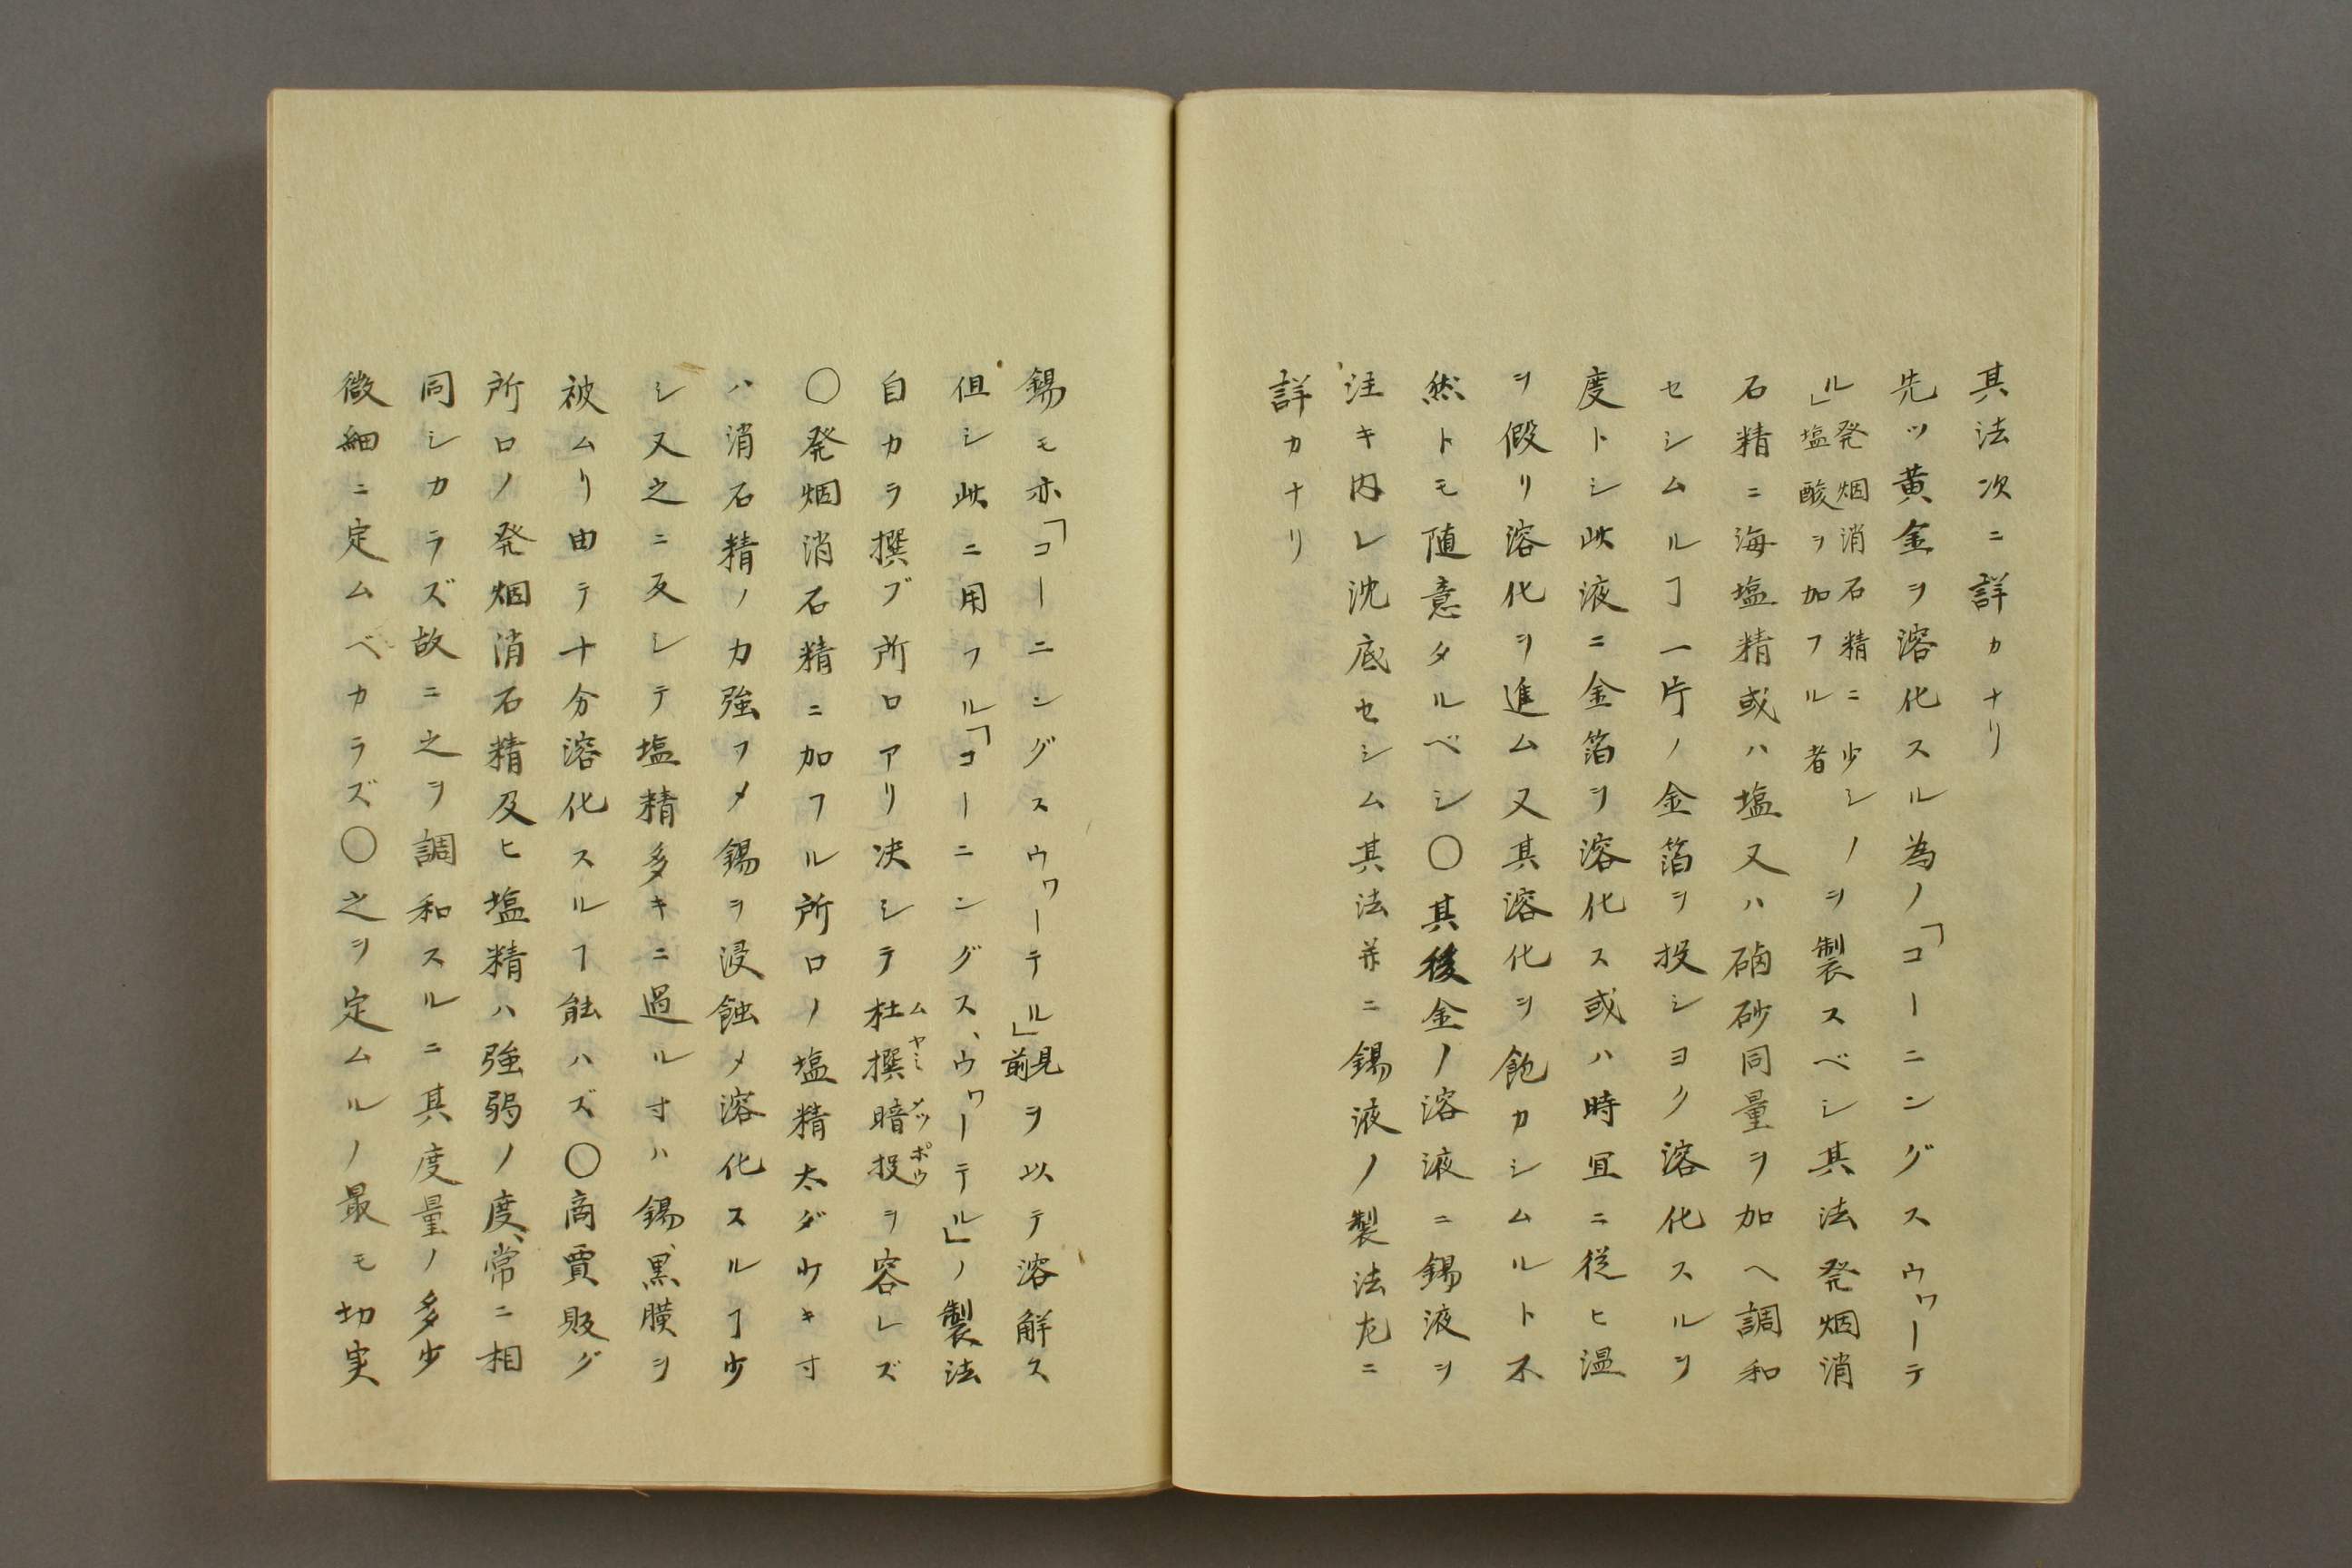 其法次ニ詳カナリ
先ツ黄金ヲ溶化スル為ノ「コーニングスウワーテ
ル」発烟消石精ニ少シノ塩酸ヲ加フル者ヲ製スベシ其法発烟消
石精ニ海塩精或ハ塩又ハ硇砂同量ヲ加ヘ調和
セシムルヿ一片ノ金箔ヲ投シヨク溶化スルヲ
度トシ此液ニ金箔ヲ溶化ス或ハ時宜ニ従ヒ温
ヲ假リ溶化ヲ進ム又其溶化ヲ飽カシムルト不
然トモ随意タルベシ〇其後金ノ溶液ニ錫液ヲ
注キ内レ沈底セシム其法并ニ錫液ノ製法左ニ
詳カナリ
錫モ亦「コーニングスウワーテル」前見ヲ以テ溶解ス
但シ此ニ用フル「コーニングス、ウワーテル」ノ製法
自カラ撰ブ所ロアリ决シテ杜撰暗投ヲ容レズ
ムヤミメツポウ
〇発烟消石精ニ加フル所ロノ塩精太ダ少キ寸
ハ消石精ノ力強フメ錫ヲ浸蝕メ溶化スルヿ少
シ又之ニ反シテ塩精多キニ過ル寸ハ錫、黒膜ヲ
被ムリ由テ十分溶化スルヿ能ハズ〇商賈販グ
所ロノ発烟消石精及ヒ塩精ハ強弱ノ度、常ニ相
同シカラズ故ニ之ヲ調和スルニ其度量ノ多少
微細ニ定ムベカラズ〇之ヲ定ムルノ最モ切実